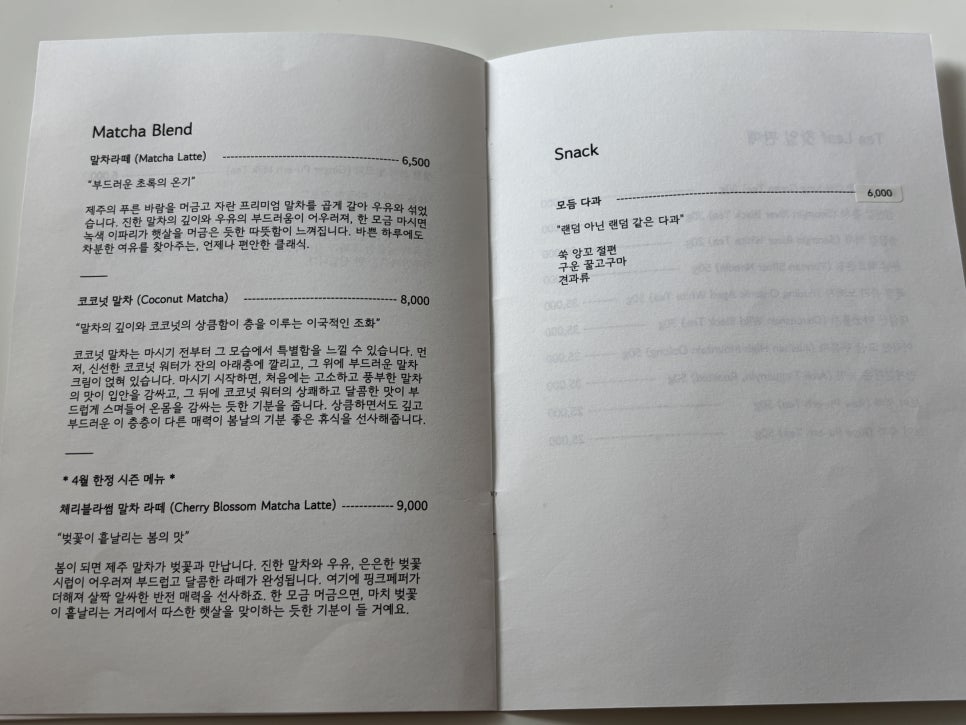 Matcha Blend
말차라떼 (Matcha Latte) ---------------------------------------- 6,500
“부드러운 초록의 온기”
제주의 푸른 바람을 머금고 자란 프리미엄 말차를 곱게 갈아 우유와 섞었
습니다. 진한 말차의 깊이와 우유의 부드러움이 어우러져, 한 모금 마시면
녹색 이파리가 햇살을 머금은 듯한 따뜻함이 느껴집니다. 바쁜 하루에도
차분한 여유를 찾아주는, 언제나 편안한 클래식.
코코넛 말차 (Coconut Matcha) ---------------------------------- 8,000
“말차의 깊이와 코코넛의 상큼함이 층을 이루는 이국적인 조화”
코코넛 말차는 마시기 전부터 그 모습에서 특별함을 느낄 수 있습니다. 먼
저, 신선한 코코넛 워터가 잔의 아래층에 깔리고, 그 위에 부드러운 말차
크림이 얹혀 있습니다. 마시기 시작하면, 처음에는 고소하고 풍부한 말차
의 맛이 입안을 감싸고, 그 뒤에 코코넛 워터의 상쾌하고 달콤한 맛이 부
드럽게 스며들어 온몸을 감싸는 듯한 기분을 줍니다. 상큼하면서도 깊고
부드러운 이 층층이 다른 매력이 봄날의 기분 좋은 휴식을 선사해줍니다.
* 4월 한정 시즌 메뉴 *
체리블라썸 말차 라떼 (Cherry Blossom Matcha Latte) ------------ 9,000
“벚꽃이 흩날리는 봄의 맛”
봄이 되면 제주 말차가 벚꽃과 만납니다. 진한 말차와 우유, 은은한 벚꽃
시럽이 어우러져 부드럽고 달콤한 라떼가 완성됩니다. 여기에 핑크페퍼가
더해져 살짝 알싸한 반전 매력을 선사하죠. 한 모금 머금으면, 마치 벚꽃
이 흩날리는 거리에서 따스한 햇살을 맞이하는 듯한 기분이 들 거예요.
Snack
모듬 다과 ------------------------------------------------ 6,000
“랜덤 아닌 랜덤 같은 다과”
쑥 앙꼬 절편
구운 꿀고구마
견과류